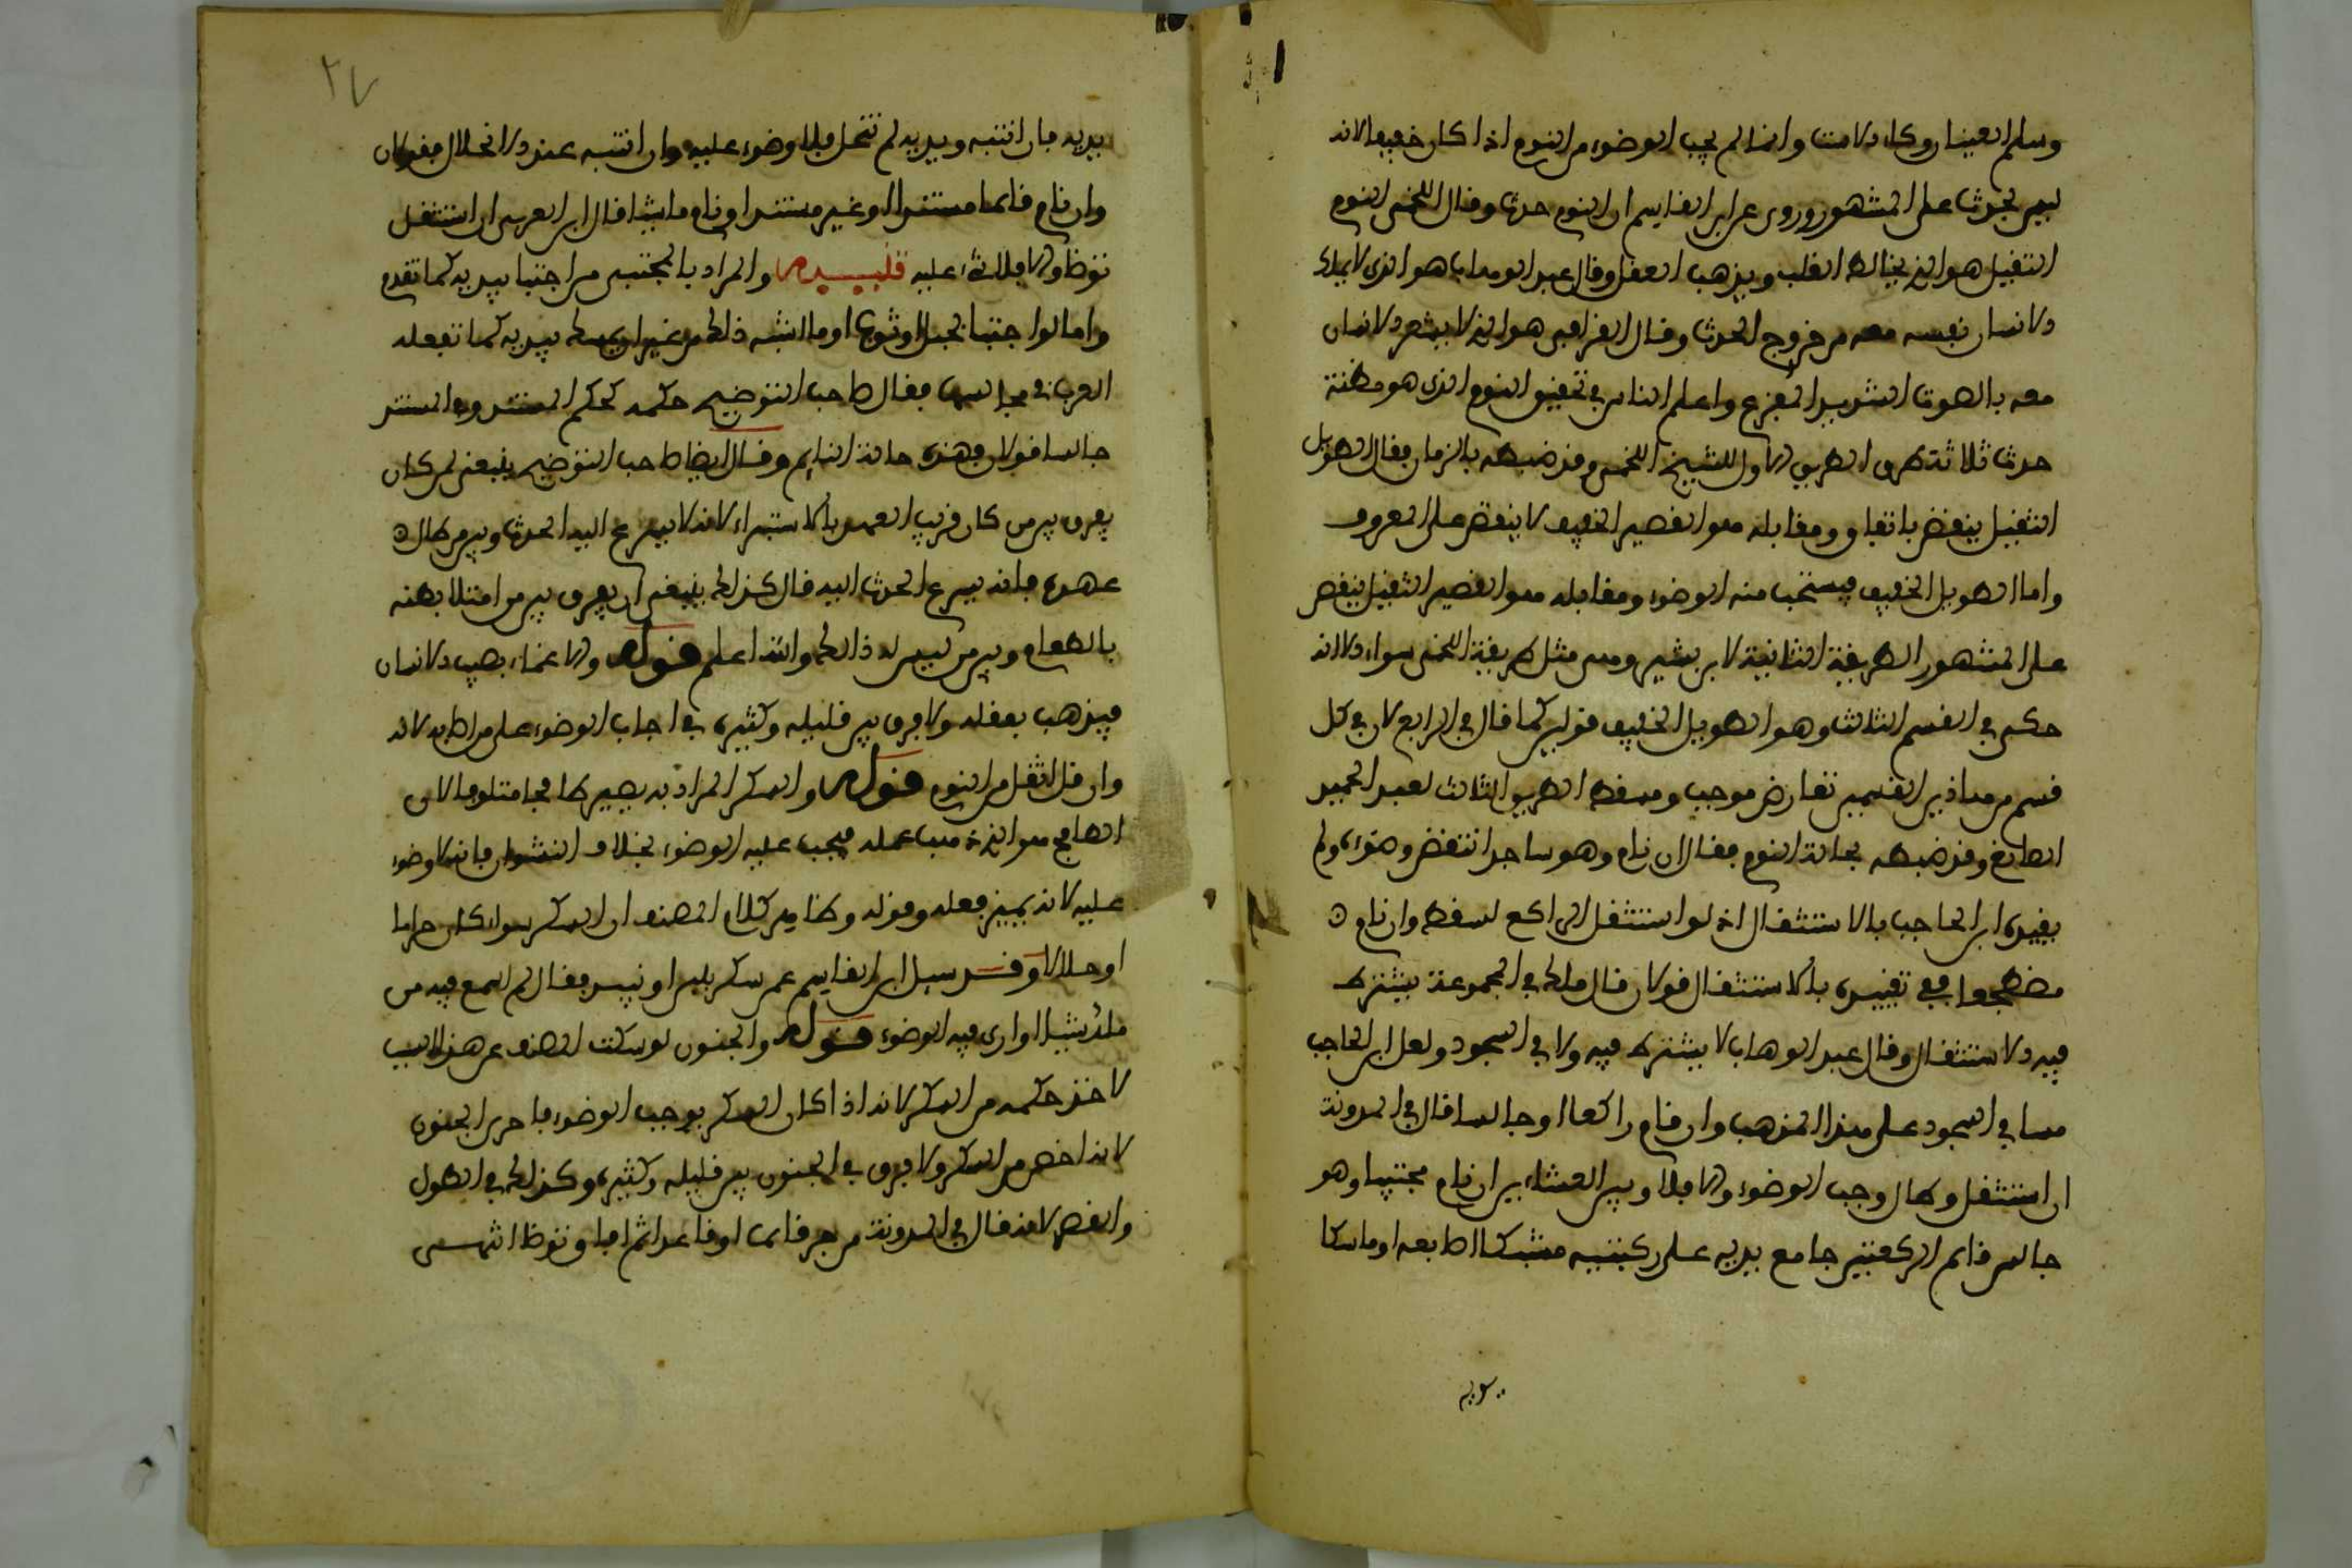 وسلم العينان وكاء الاست وانما لم يجب الوضوء من النوم اذا كان خفيفا لانه
ليس بحدث على المشهور وروى عن ابن القاسم ان النوم حدث وقال اللخمي النوم
الثقيل هو الذي يخالط القلب ويذهب العقل وقال عبد الوهاب هو الذي لا يملك
الانسان نفسه معه من خروج الحدث وقال القرافي هو الذي لا يشعر الانسان
معه بالصوت الشديد المفزع واعلم ان الناس في تحقيق النوم الذي هو مظنة
حدث ثلاثة طرق الطريق الاول للشيخ اللخمي وقد ضبطه بالزمان فقال الطويل
الثقيل ينقض باتفاق ومقابله هو القصير الخفيف لا ينقض على المعروف
واما الطويل الخفيف فيستحب منه الوضوء ومقابله هو القصير الثقيل ينقض
على المشهور الطريقة الثانية لابن بشير وهي مثل طريقة اللخمي سواء الا انه
حكى في القسم الثالث وهو الطويل الخفيف قولين كما قال في الرابع لان في كل
قسم من هاذين القسمين تعارض موجب ومسقط الطريق الثالث لعبد الحميد
الصايغ وقد ضبطه بحالة النوم فقال ان نام وهو ساجد انتقض وضوءه ولم
يقيده ابن الحاجب بالاستثقال اذ لو استثقل الراكع لسقط وان نام
مضطجعا ففي تقييده بالاستثقال قولان قال مالك في المجموعة يشترط
فيه الاستثقال وقال عبد الوهاب لا يشترط فيه ولا في السجود ولعل ابن الحاجب
مشا في السجود على هذا المذهب وان نام راكعا او جالسا قال في المدونة
ان استثقل وطال وجب الوضوء والا فلا وبين العشاءين ان نام محتبيا وهو
جالس قايم الركبتين جامع يديه على ركبتيه مشبكا اصابعه او ماسكا
بيديه فان انتبه ويديه لم تنحل فلا وضوء عليه وان انتبه عند الانحلال فقولان
وان نام قائما مستندا او غير مستند او نام ماشيا قال ابن العربي ان استثقل
توضا والا فلا شيء عليه تنبيه والمراد بالمحتبي من احتبا بيديه كما تقدم
واما لو احتبا بحبل او ثوب او ما اشبه ذلك من غير ان يمسك بيديه كما تفعله
العرب في مجالسها فقال صاحب التوضيح حكمه كحكم المستند وفي المستند
جالسا قولان وهذه حالة النايم وقال ايضا صاحب التوضيح ينبغي لمن كان
يفرق بين من كان قريب العهد بالاستبراء لانه لا يسرع اليه الحدث وبين من طال
عهده فانه يسرع الحدث اليه قال كذلك ينبغي ان يفرق بين من امتلا بطنه
بالطعام وبين من ليس له ذلك والله اعلم قوله والاغماء يصيب الانسان
فيذهب بعقله ولا فرق بين قليله وكثيره في ايجاب الوضوء على من اصابه لانه
وان قل اثقل من النوم قوله والسكر المراد به يصير طافحا ممتلئا لان
الطافح هو الذي غيب عقله فيجب عليه الوضوء بخلاف النشوان فانه لا وضوء
عليه لانه يميز فعله وقوله وظاهر كلام المصنف ان السكر سواء كان حراما
او حلالا وقد سيل ابن القاسم عمن سكر بلبن او نبيذ فقال لم اسمع فيه من
مالك شيئا وارى فيه الوضوء قوله والجنون لو سكت المصنف عن هذا السبب
لاخذ حكمه من السكر لانه اذا كان السكر يوجب الوضوء فاحرى الجنون
لانه اخص من السكر ولا فرق في الجنون بين قليله وكثيره وكذلك في الطول
والقصر لانه قال في المدونة من جن قائما او قاعدا ثم افاق توضا انتهى